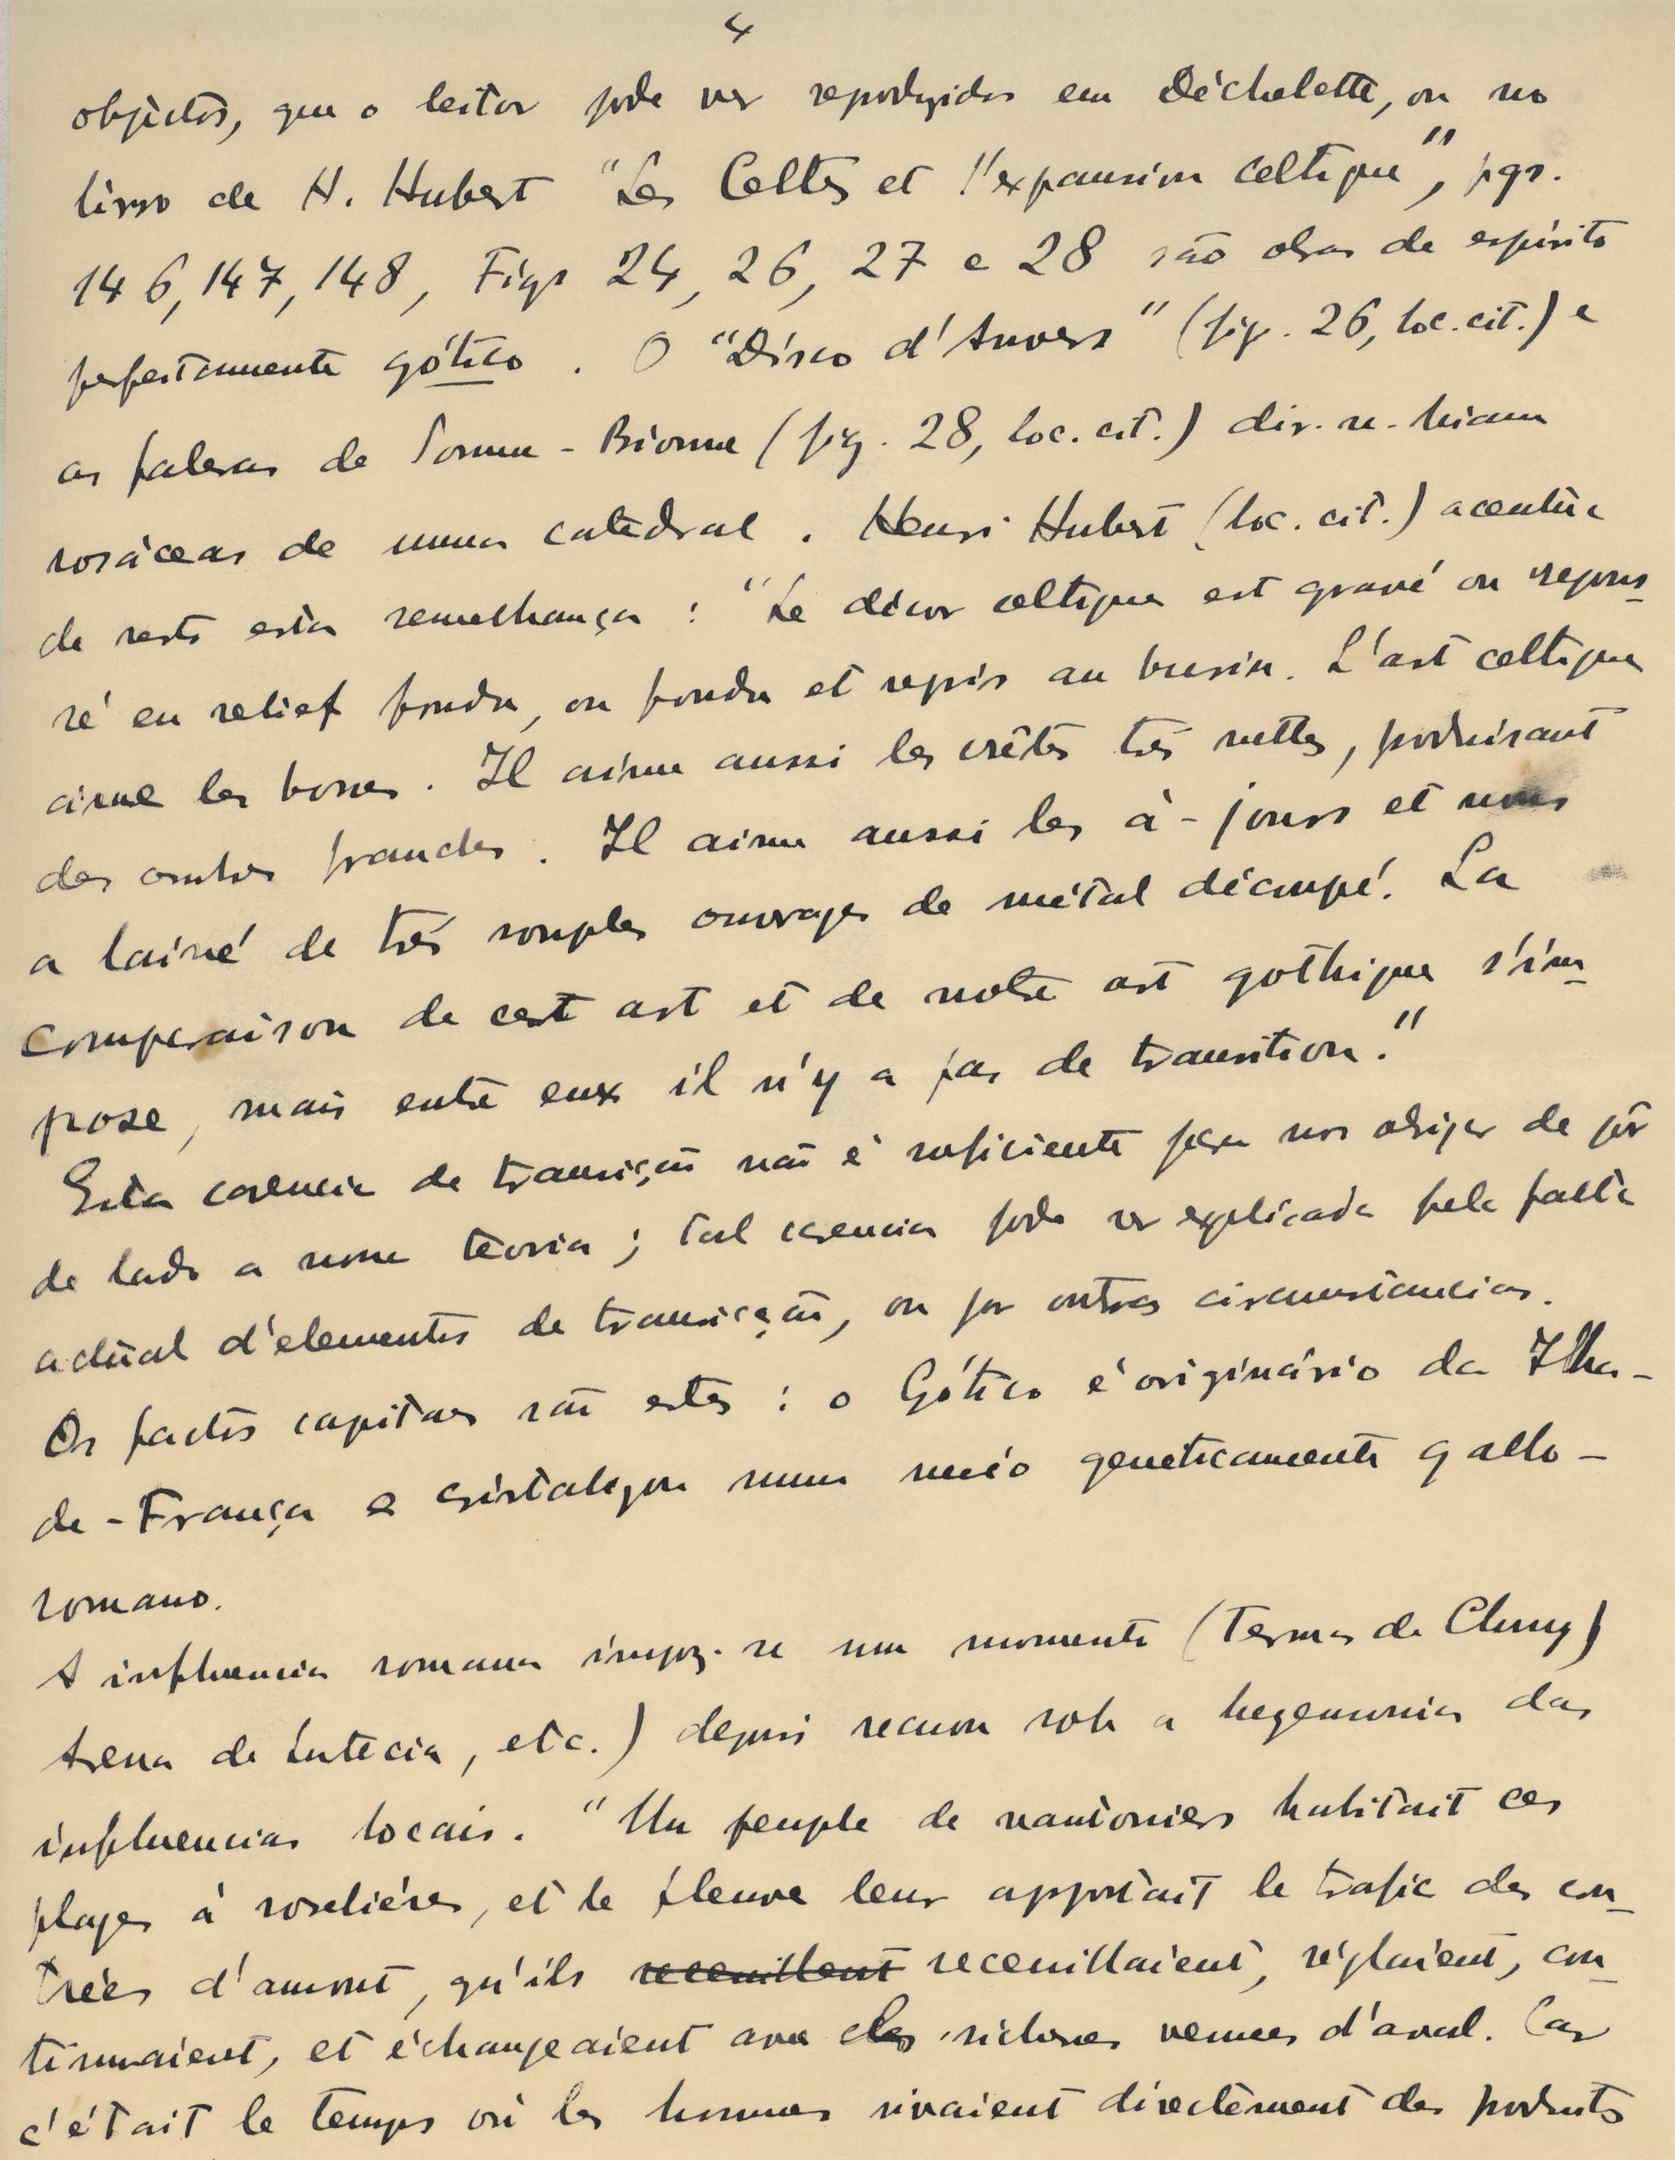 4
objectos, que o leitor pode ver reproduzidos em Déchelette, ou no
livro de H. Hubert "Les Celtes et l'expansion celtique", pgs.
146, 147, 148, Figs 24, 26, 27 e 28 são obras de espírito
perfeitamente gótico. O "Disco d'Auvers" (fig. 26, loc. cit.) e
as faleras de Somme-Bionne (fig. 28, loc. cit.) dir-se-hiam
rosáceas de uma catedral. Henri Hubert (loc. cit.) acentúa
de resto esta semelhança: "Le décor celtique est gravé ou repous-
sé en relief fondu, ou fondu et repris au burin. L'art celtique
aime les bosses. Il aime aussi les crêtes très nettes, produisant
des ombres franches. Il aime aussi les à-jours et nous
a laissé de très souples ouvrages de métal découpé. La
comparaison de cet art et de notre art gothique s'im-
pose, mais entre eux il n'y a pas de transition."
Esta carencia de transição não é suficiente para nos obrigar de pôr
de lado a nossa teoria; tal carencia pode ser explicada pela falta
actual d'elementos de transicção, ou por outras circunstancias.
Os factos capitaes são estes: o Gótico é originário da Ilha-
de-França e cristalizou num meio geneticamente gallo-
romano.
A influencia romana impoz-se um momento (Termas de Cluny)
Arena de Lutecia, etc.) depois recuou sob a hegemonia das
influencias locais. "Un peuple de nautoniers habitait ces
plages à roselières, et le fleuve leur apportait le trafic des con-
trées d'amont, qu'ils recueillent recueillaient, réglaient, con-
tinuaient, et échangeaient avec des richesses venues d'aval. Car
c'était le temps où les hommes vivaient directement des produits